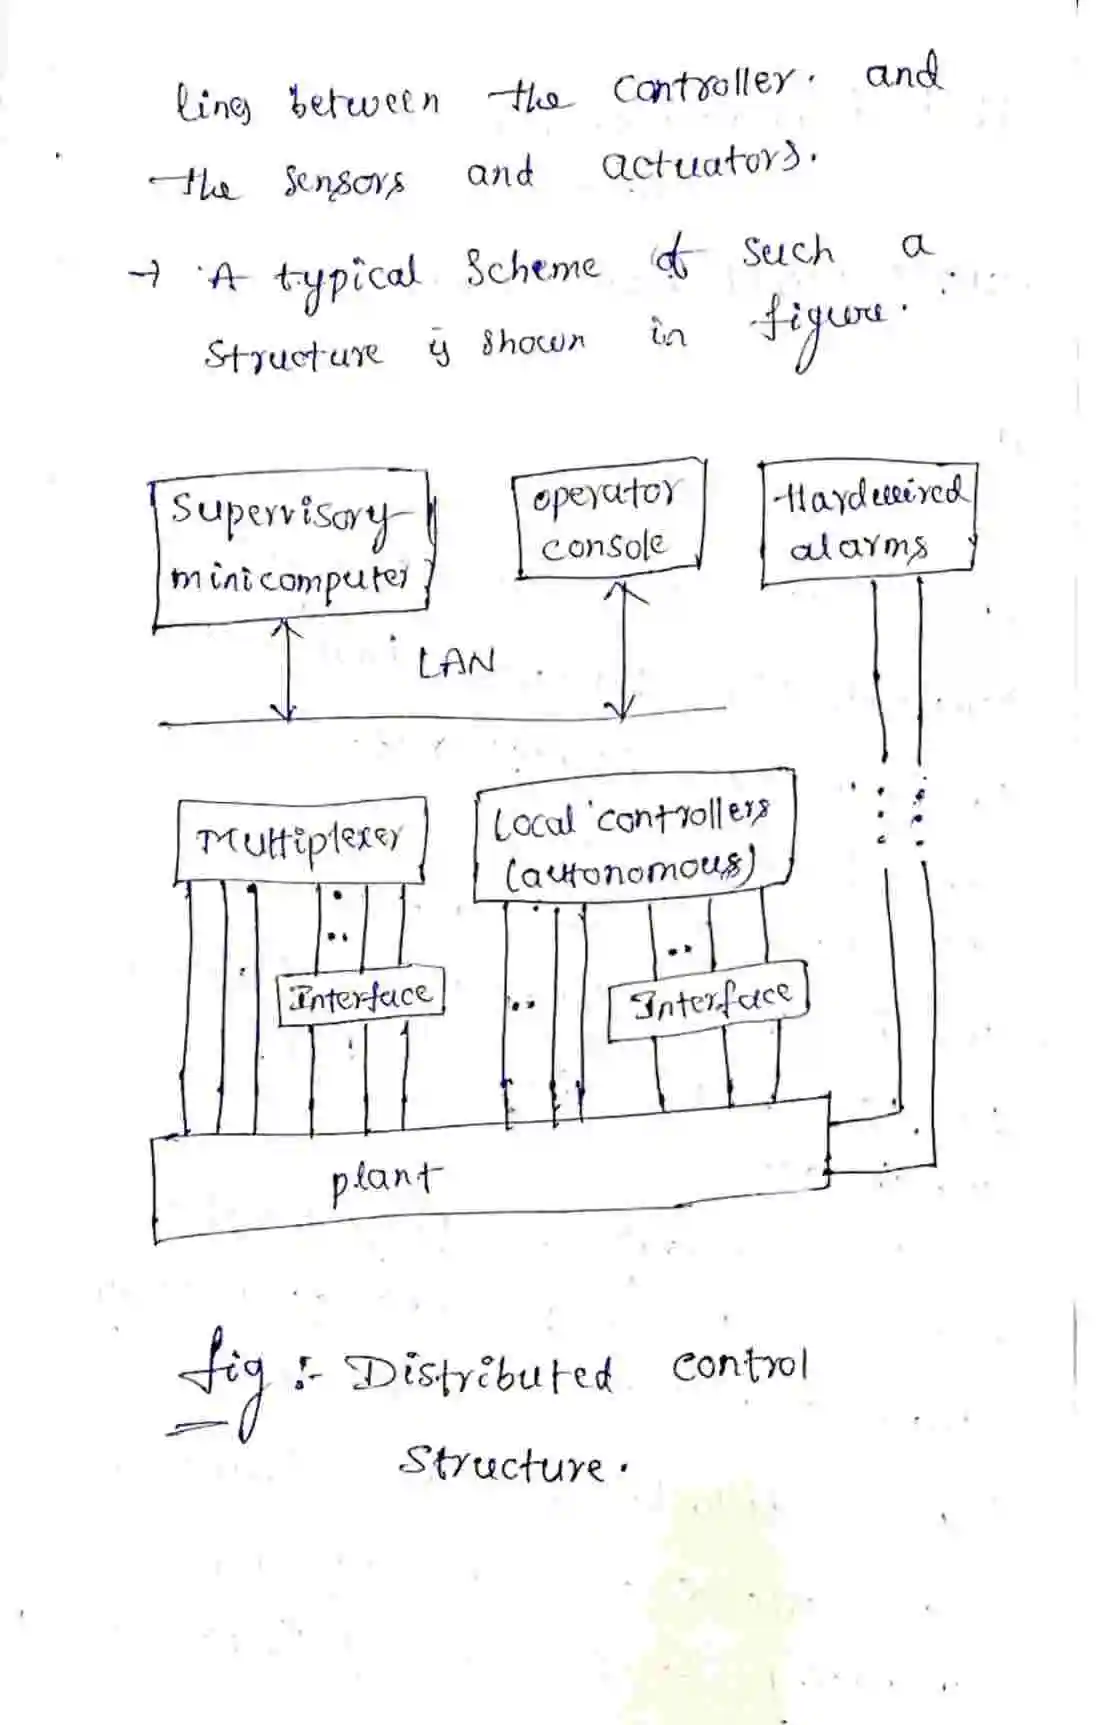 lines between the controller. and
the sensors and actuators.
→ A typical scheme of such a
structure is shown in figure.
Supervisory
minicomputer
operator
console
Hardwired
alarms
LAN
Multiplexer
Local controllers
(autonomous)
Interface
Interface
plant
fig :- Distributed control
structure.